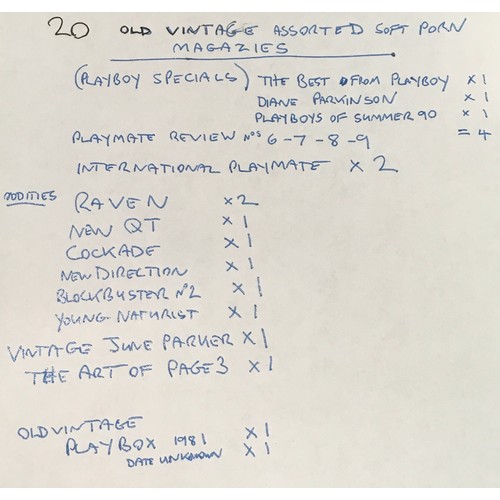 20 OLD VINTAGE ASSORTED SOFT PORN
MAGAZIES
(PLAYBOY SPECIALS) THE BEST FROM PLAYBOY x 1
DIANE PARKINSON x 1
PLAYBOYS OF SUMMER 90 x 1
PLAYMATE REVIEW Nos 6 - 7 - 8 - 9 = 4
INTERNATIONAL PLAYMATE x 2
ODDITIES RAVEN x 2
NEW QT x 1
COCKADE x 1
NEW DIRECTION x 1
BLOCKBUSTER No 2 x 1
YOUNG NATURIST x 1
VINTAGE JUNE PARKER x 1
THE ART OF PAGE 3 x 1
OLD VINTAGE
PLAYBOX 1981 x 1
DATE UNKNOWN x 1